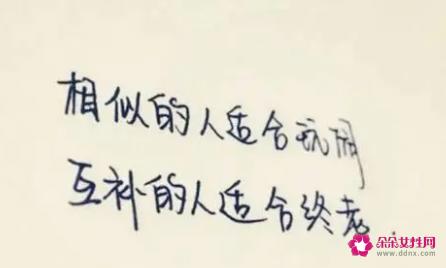 相似的人适合玩闹
互补的人适合终老
朵朵女性网
www.ddnx.com